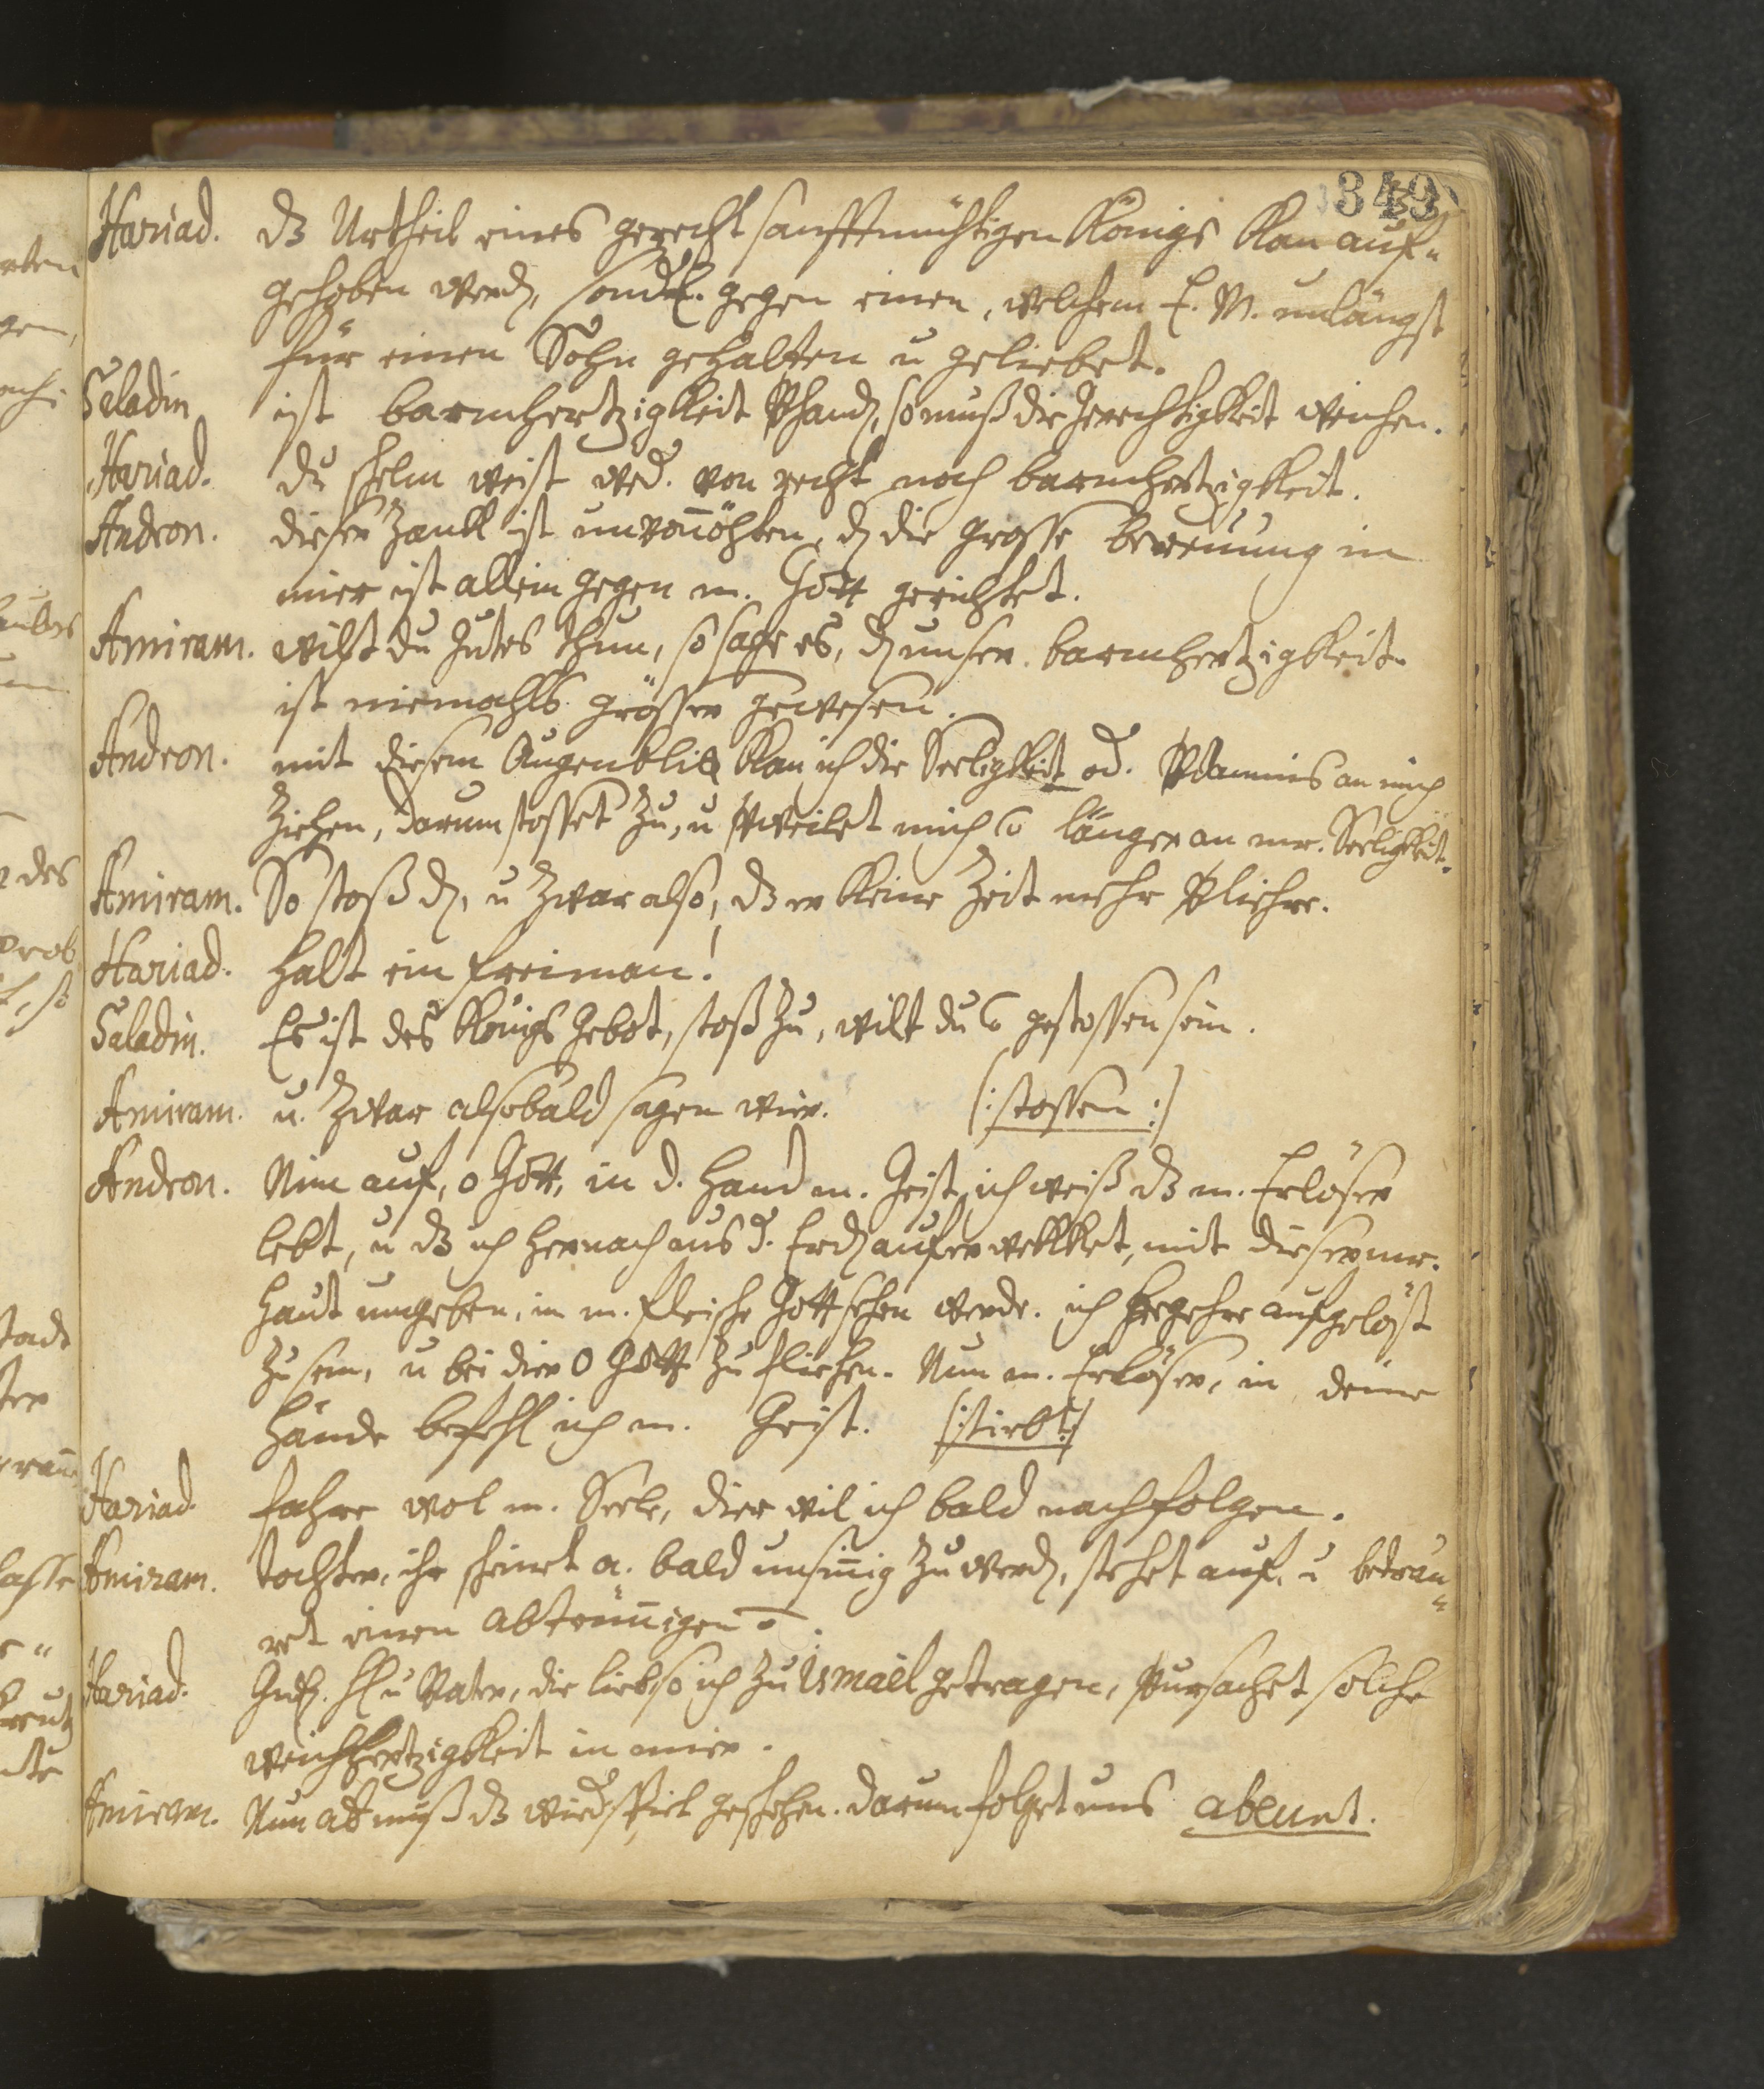 349
Hariad. dz Urtheil eines gerecht sanfftmühtigen Königs kan auf-
gehoben werdē, sondḷ. gegen einen, welchem E. M. unlängst
für einen Sohn gehalten u geliebet.
Saladin ist barmhertzigkeit vhandē, so muß die Gerechtigkeit weichen.
Hariad. du schelm weist wed. von recht noch barmhertzigkeit.
Andron. dieser Zankk ist unvoñöhten, dē die grosse bereuung in
mier ist allein gegen m. Gott gerichtet.
Amiram. wilst du Gutes thun, so sage es, dē unser barmhertzigkeit
ist niemahls grösser gewesen.
Andron. mit diesem Augenblik kan ich die Seeligkeit od. vdamnis an mich
Ziehen, darum stosset zu, u vweilet mich länger an mr. Seeligkeit.
Amiram. So stoß dē, u Zwar also, dz er keine Zeit mehr vliehre.
Hariad. halt ein freiman!
Saladin. Es ist des Königs Gebot, stoß zu, wilt du gestossen sein.
Amiram. u. Zwar alsobald sagen wier. (: stossen :)
Andron. Nim auf, o Gott, in d. Hand m. Geist, ich weiß dz m. Erlöser
lebt, u dz ich hernach aus d. Erdē auferwekket, mit dieser mr.
Haut umgeben, in m. fleische Gott sehen werde. ich begehre aufgelöst
zu sein, u bei dier O Gott zu fliehen. Nun m. Erlöser, in deine
Hände befehl ich m. Geist. (: stirbt :)
Hariad fahre wol m. Seele, dier wil ich bald nachfolgen.
Amiram. tochter, ihr scheinet a. bald unsiñig zu werdē, stehet auf, u bedrau-
ret einen abtrüñigen
Hariad. u Vater, die liebe so ich zu Ismaël getragen, vursachet solche
weichhertzigkeit in mier.
Amiram. Nun muß dz wiedspiel geschehen. darum folget uns abeunt.